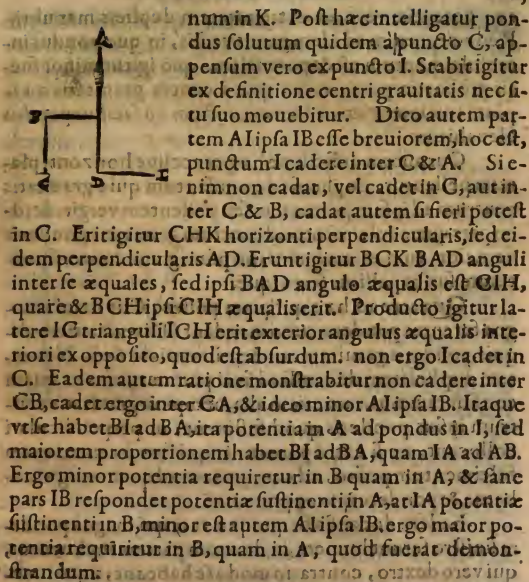 num in K. Post hæc intelligatur pon-
dus solutum quidem à puncto C, ap-
pensum vero ex puncto I. Stabit igitur
ex definitione centri grauitatis nec si-
tu suo mouebitur. Dico autem par-
tem AI ipsa IB esse breuiorem, hoc est,
punctum I cadere inter C & A. Si e-
nim non cadat, vel cadet in C, aut in-
ter C & B, cadat autem si fieri potest
in C. Erit igitur CHK horizonti perpendicularis, sed ei-
dem perpendicularis AD. Erunt igitur BCK BAD anguli
inter se æquales, sed ipsi BAD angulo æqualis est CIH,
quare & BCH ipsi CIH æqualis erit. Producto igitur la-
tere IC trianguli ICH erit exterior angulus æqualis inte-
riori ex opposito, quod est absurdum. non ergo I cadet in
C. Eadem autem ratione monstrabitur non cadere inter
CB, cadet ergo inter CA, & ideo minor AI ipsa IB. Itaque
vt se habet BI ad BA, ita potentia in A ad pondus in I, sed
maiorem proportionem habet BI ad BA, quam IA ad AB.
Ergo minor potentia requiretur in B quam in A, & sane
pars IB respondet potentiæ sustinenti in A, at IA potentiæ
sustinenti in B, minor est autem AI ipsa IB. ergo maior po-
tentia requiritur in B, quam in A, quod fuerat demon-
strandum.
A
B
C D I